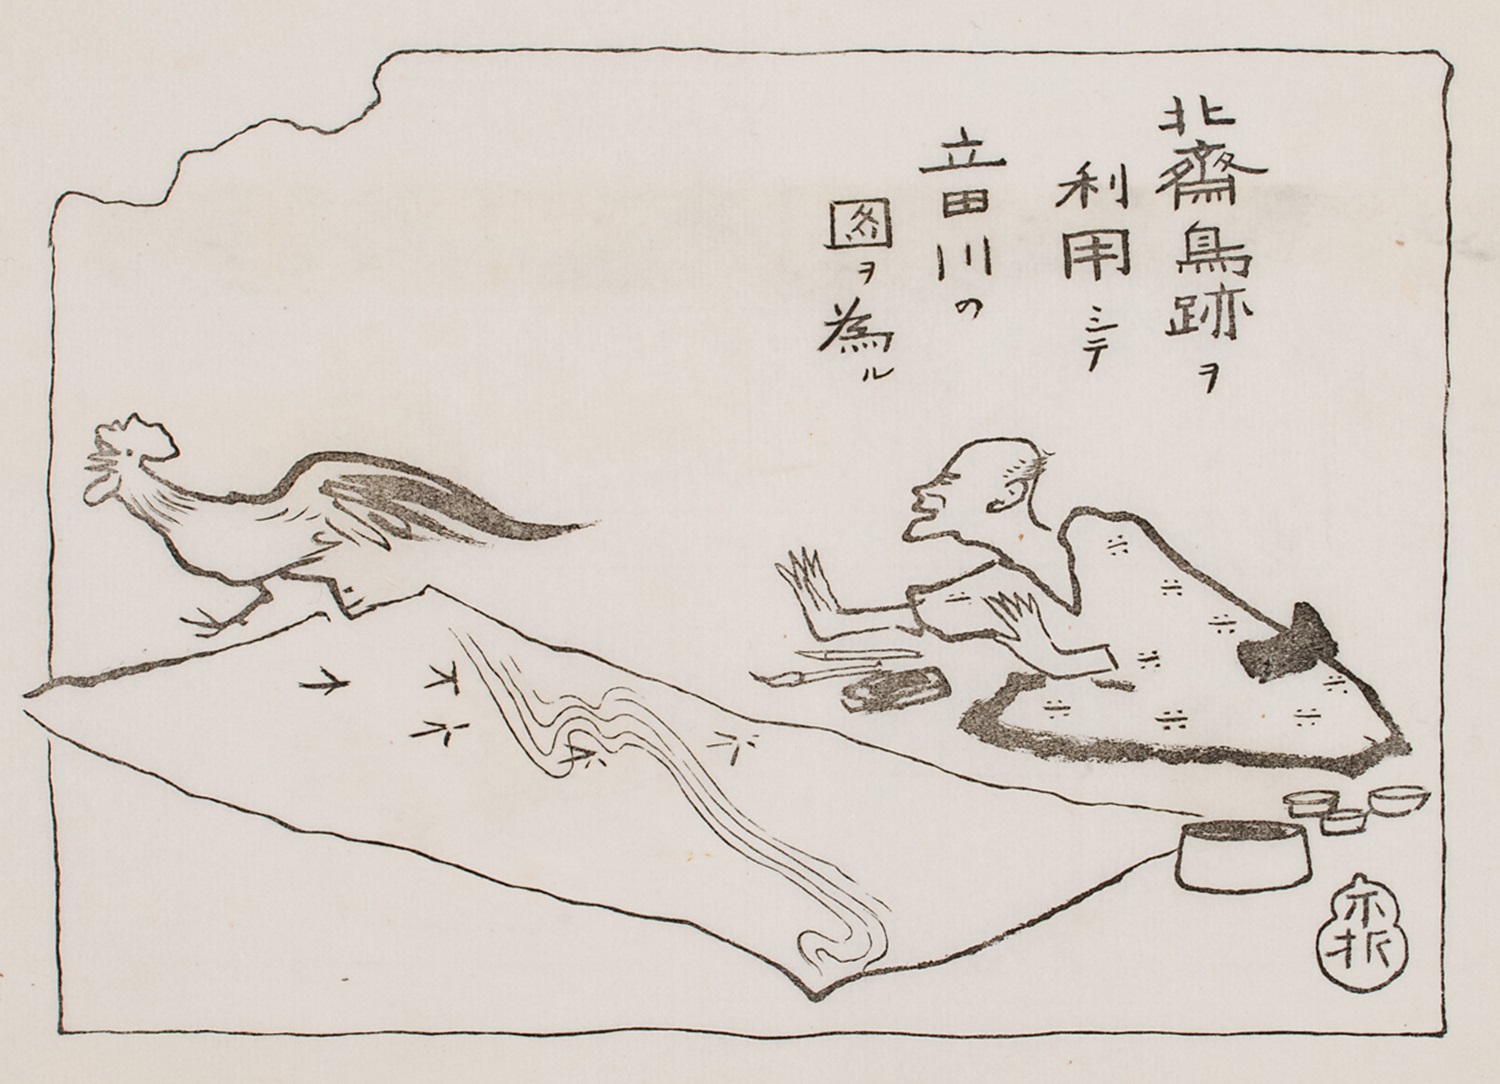 北斎鳥跡ヲ
利用シテ
立田川の
図ヲ為ル